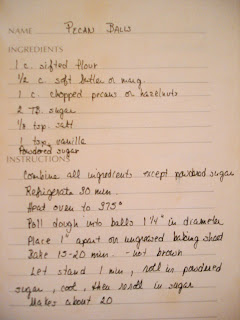 NAME Pecan Balls
INGREDIENTS
1 c. sifted flour
1/2 c. soft butter or marg.
1 c. chopped pecans or hazelnuts
2 TB. sugar
1/8 tsp. salt
1 tsp. vanilla
Powdered sugar
INSTRUCTIONS
Combine all ingredients except powdered sugar
Refrigerate 30 min.
Heat oven to 375°
Roll dough into balls 1 1/4" in diameter
Place 1" apart on ungreased baking sheet
Bake 15-20 min. - not brown
Let stand 1 min, roll in powdered
sugar, cool, then reroll in sugar
Makes about 20